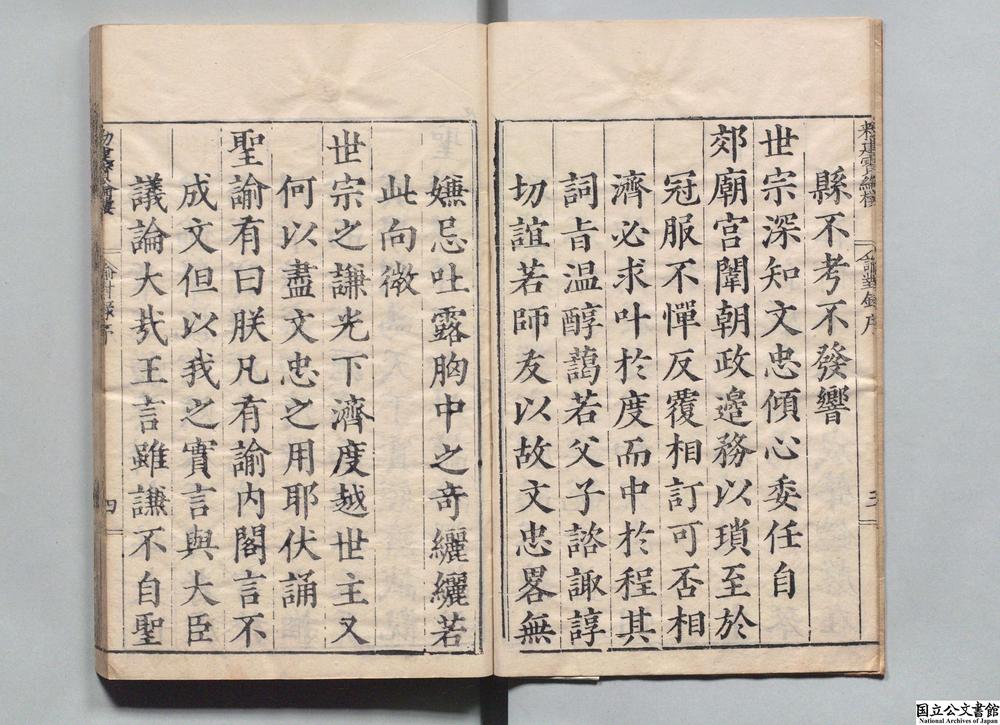 縣不考不發響
世宗深知文忠傾心委任自
郊廟宮闈朝政邉務以瑣至於
冠服不憚反覆相訂可否相
濟必求叶於度而中於程其
詞旨温醇藹若父子諮諏諄
切誼若師友以故文忠畧無
嫌忌吐露胸中之奇纚纚若
此向微
世宗之謙光下濟度越世主又
何以盡文忠之用耶伏誦
聖諭有曰朕凡有諭内閣言不
成文但以我之實言與大臣
議論大㢤王言雖謙不自聖
四
国立公文書館
National Archives of Japan